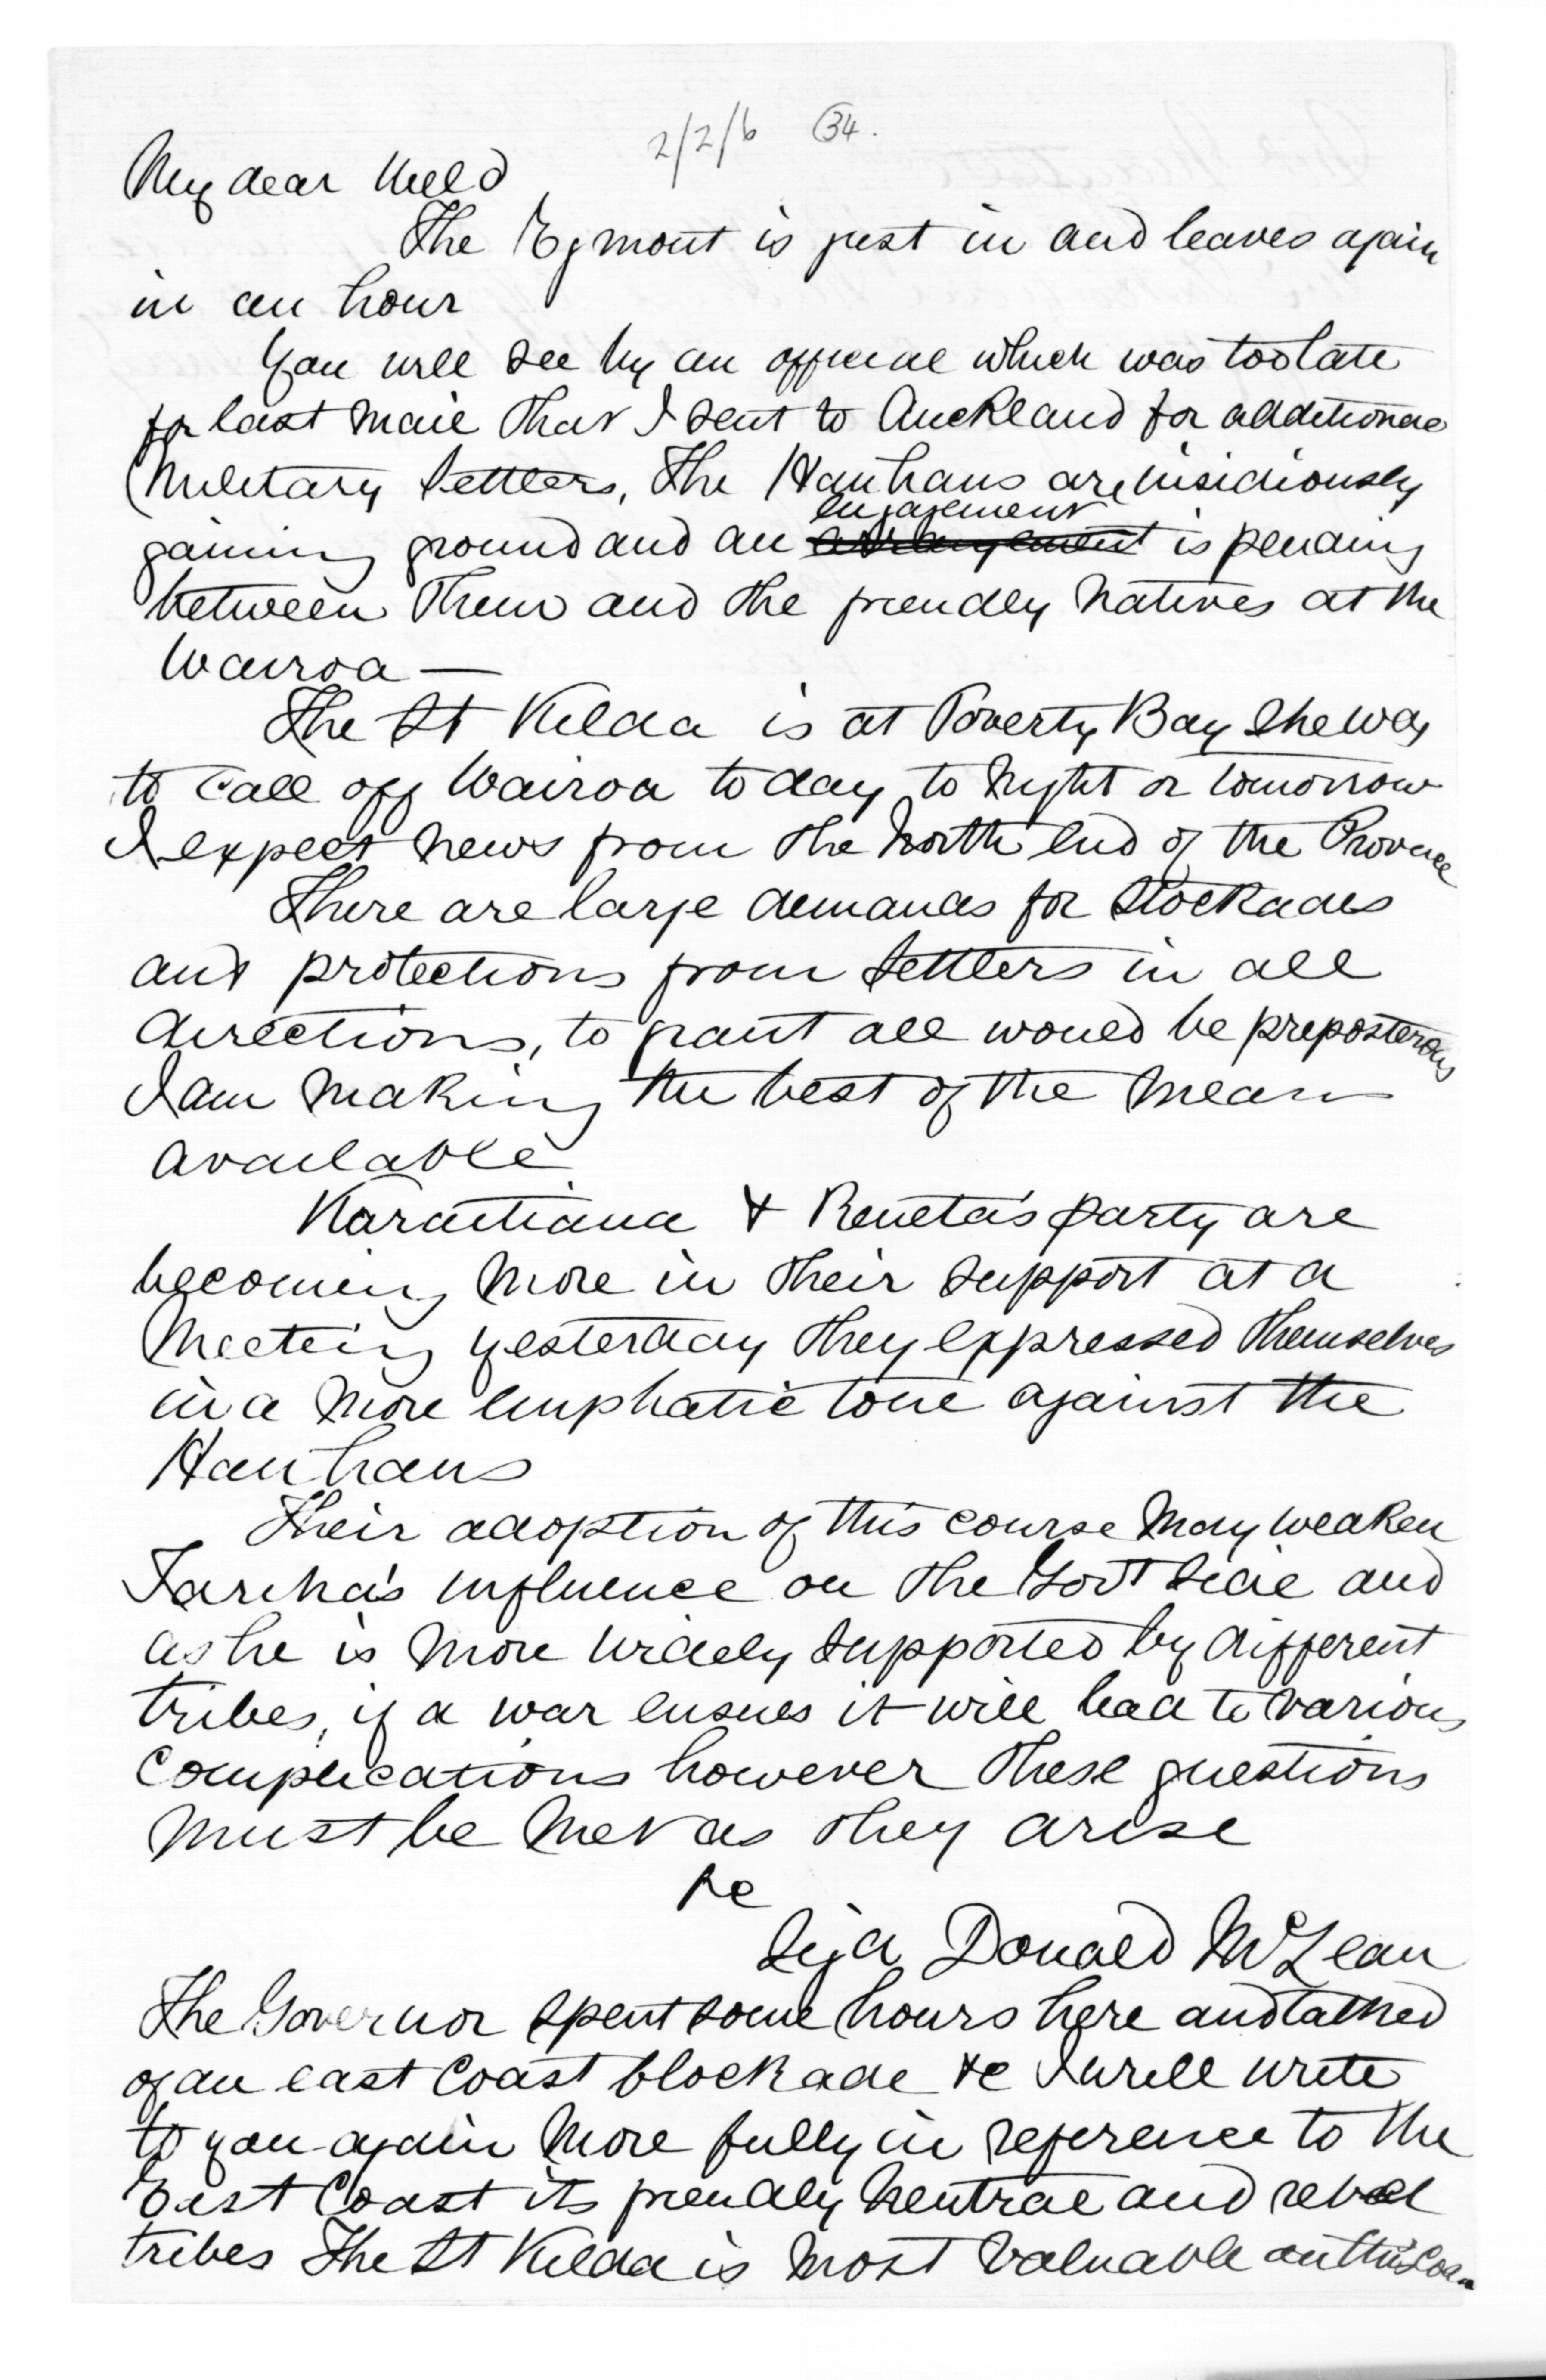 2/2/6 34.
My dear Weld
The Egmont is just in and leaves again
in an hour
You will see by an official which was too late
for last mail that I sent to Auckland for additional
Military Settlers, The Hauhaus are insidiously
engagement
gaining ground and an arrangement is pending
between them and the friendly Natives at the
Wairoa —
The St Kilda is at Poverty Bay She was
to call off Wairoa today, to Night or tomorrow
I expect News from the North end of the Province
There are large demands for Stockades
and protections from Settlers in all
directions, to grant all would be preposterous
I am making the best of the Means
available
Karaitiana & Reneta's party are
becoming more in their support at a
Meeting yesterday they expressed themselves
in a more emphatic tone against the
Hauhaus
Their adoption of this course may weaken
Tareha's influence on the Govt side and
as he is more widely supported by different
tribes, if a war ensues it will lead to various
Complications however these questions
must be met as they arise
&c
Sigd Donald McLean
The Governor spent some hours here and talked
of an east Coast blockade &c I will write
to you again more fully in reference to the
East Coast its friendly Neutral and rebel
tribes The St Kilda is most valuable on this Coa